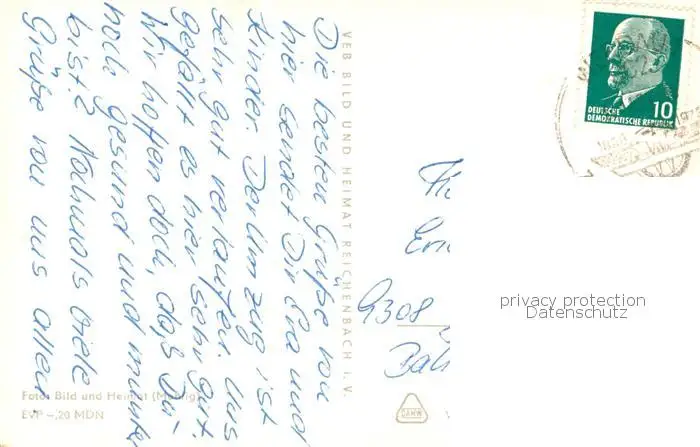 Die besten Grüße von
hier sendet Dir Eva und
Kinder. Der Umzug ist
sehr gut verlaufen. Uns
gefällt es hier sehr gut.
Wir hoffen doch, daß Du
noch gesund und munter
bist? Nochmals viele
Grüße von uns allen
VEB BILD UND HEIMAT REICHENBACH I. V.
Foto: Bild und Heimat
EVP -,20 MDN
DEUTSCHE
DEMOKRATISCHE REPUBLIK
10
9308
privacy protection
Datenschutz